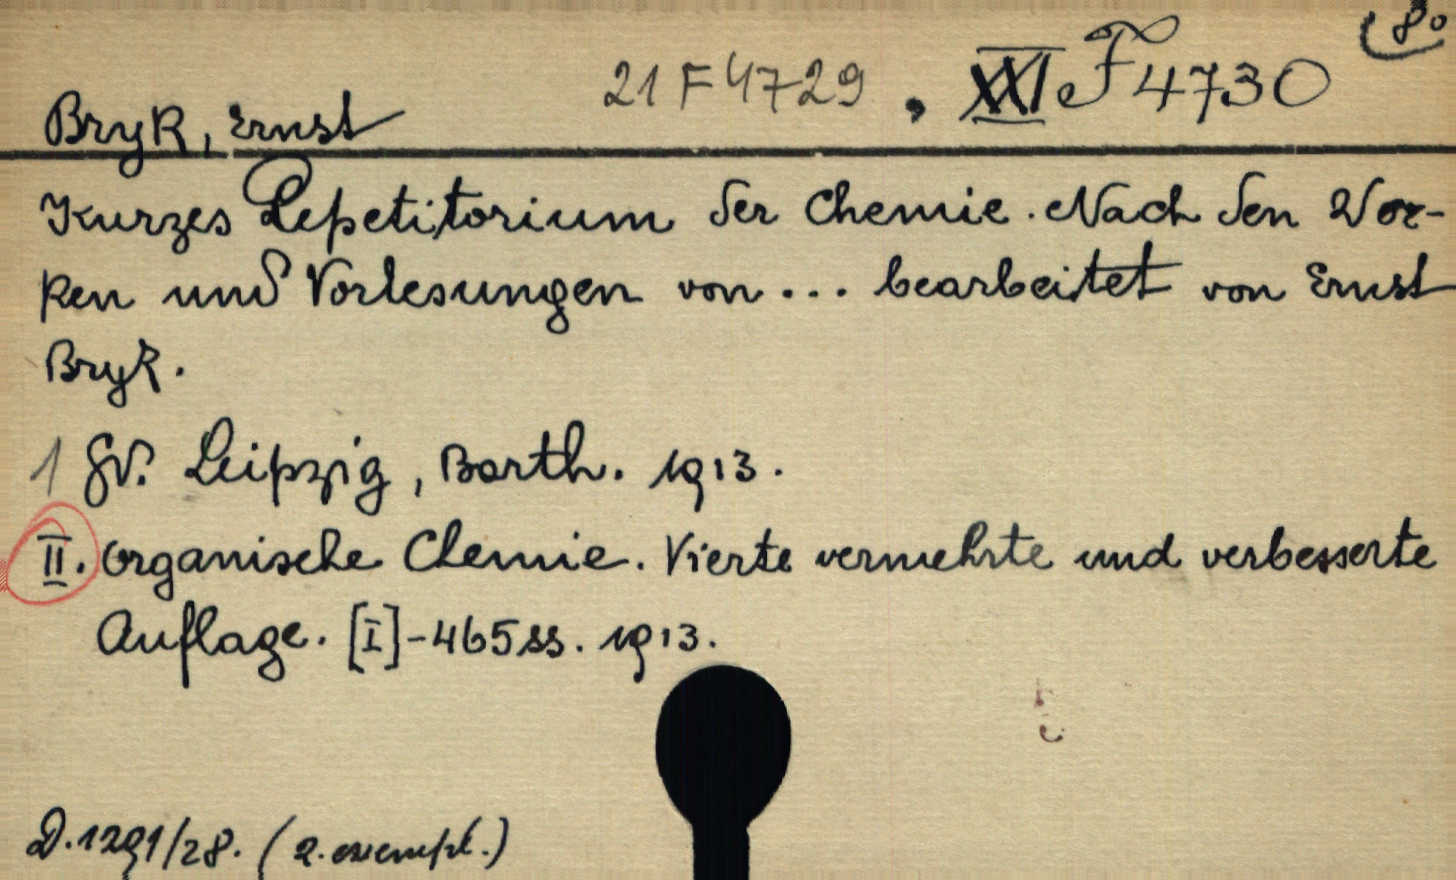 8º
21 F 4729, XXI F 4730
Bryk, Ernst
Kurzes Repetitorium der Chemie. Nach den Wor-
ken und Vorlesungen von ... bearbeitet von Ernst
Bryk.
1 Leipzig, Barth. 1913.
II. Organische Chemie. Vierte vermehrte und verbesserte
Auflage. [I]-465 ss. 1913.
D. 1291/28. (2. exempl.)